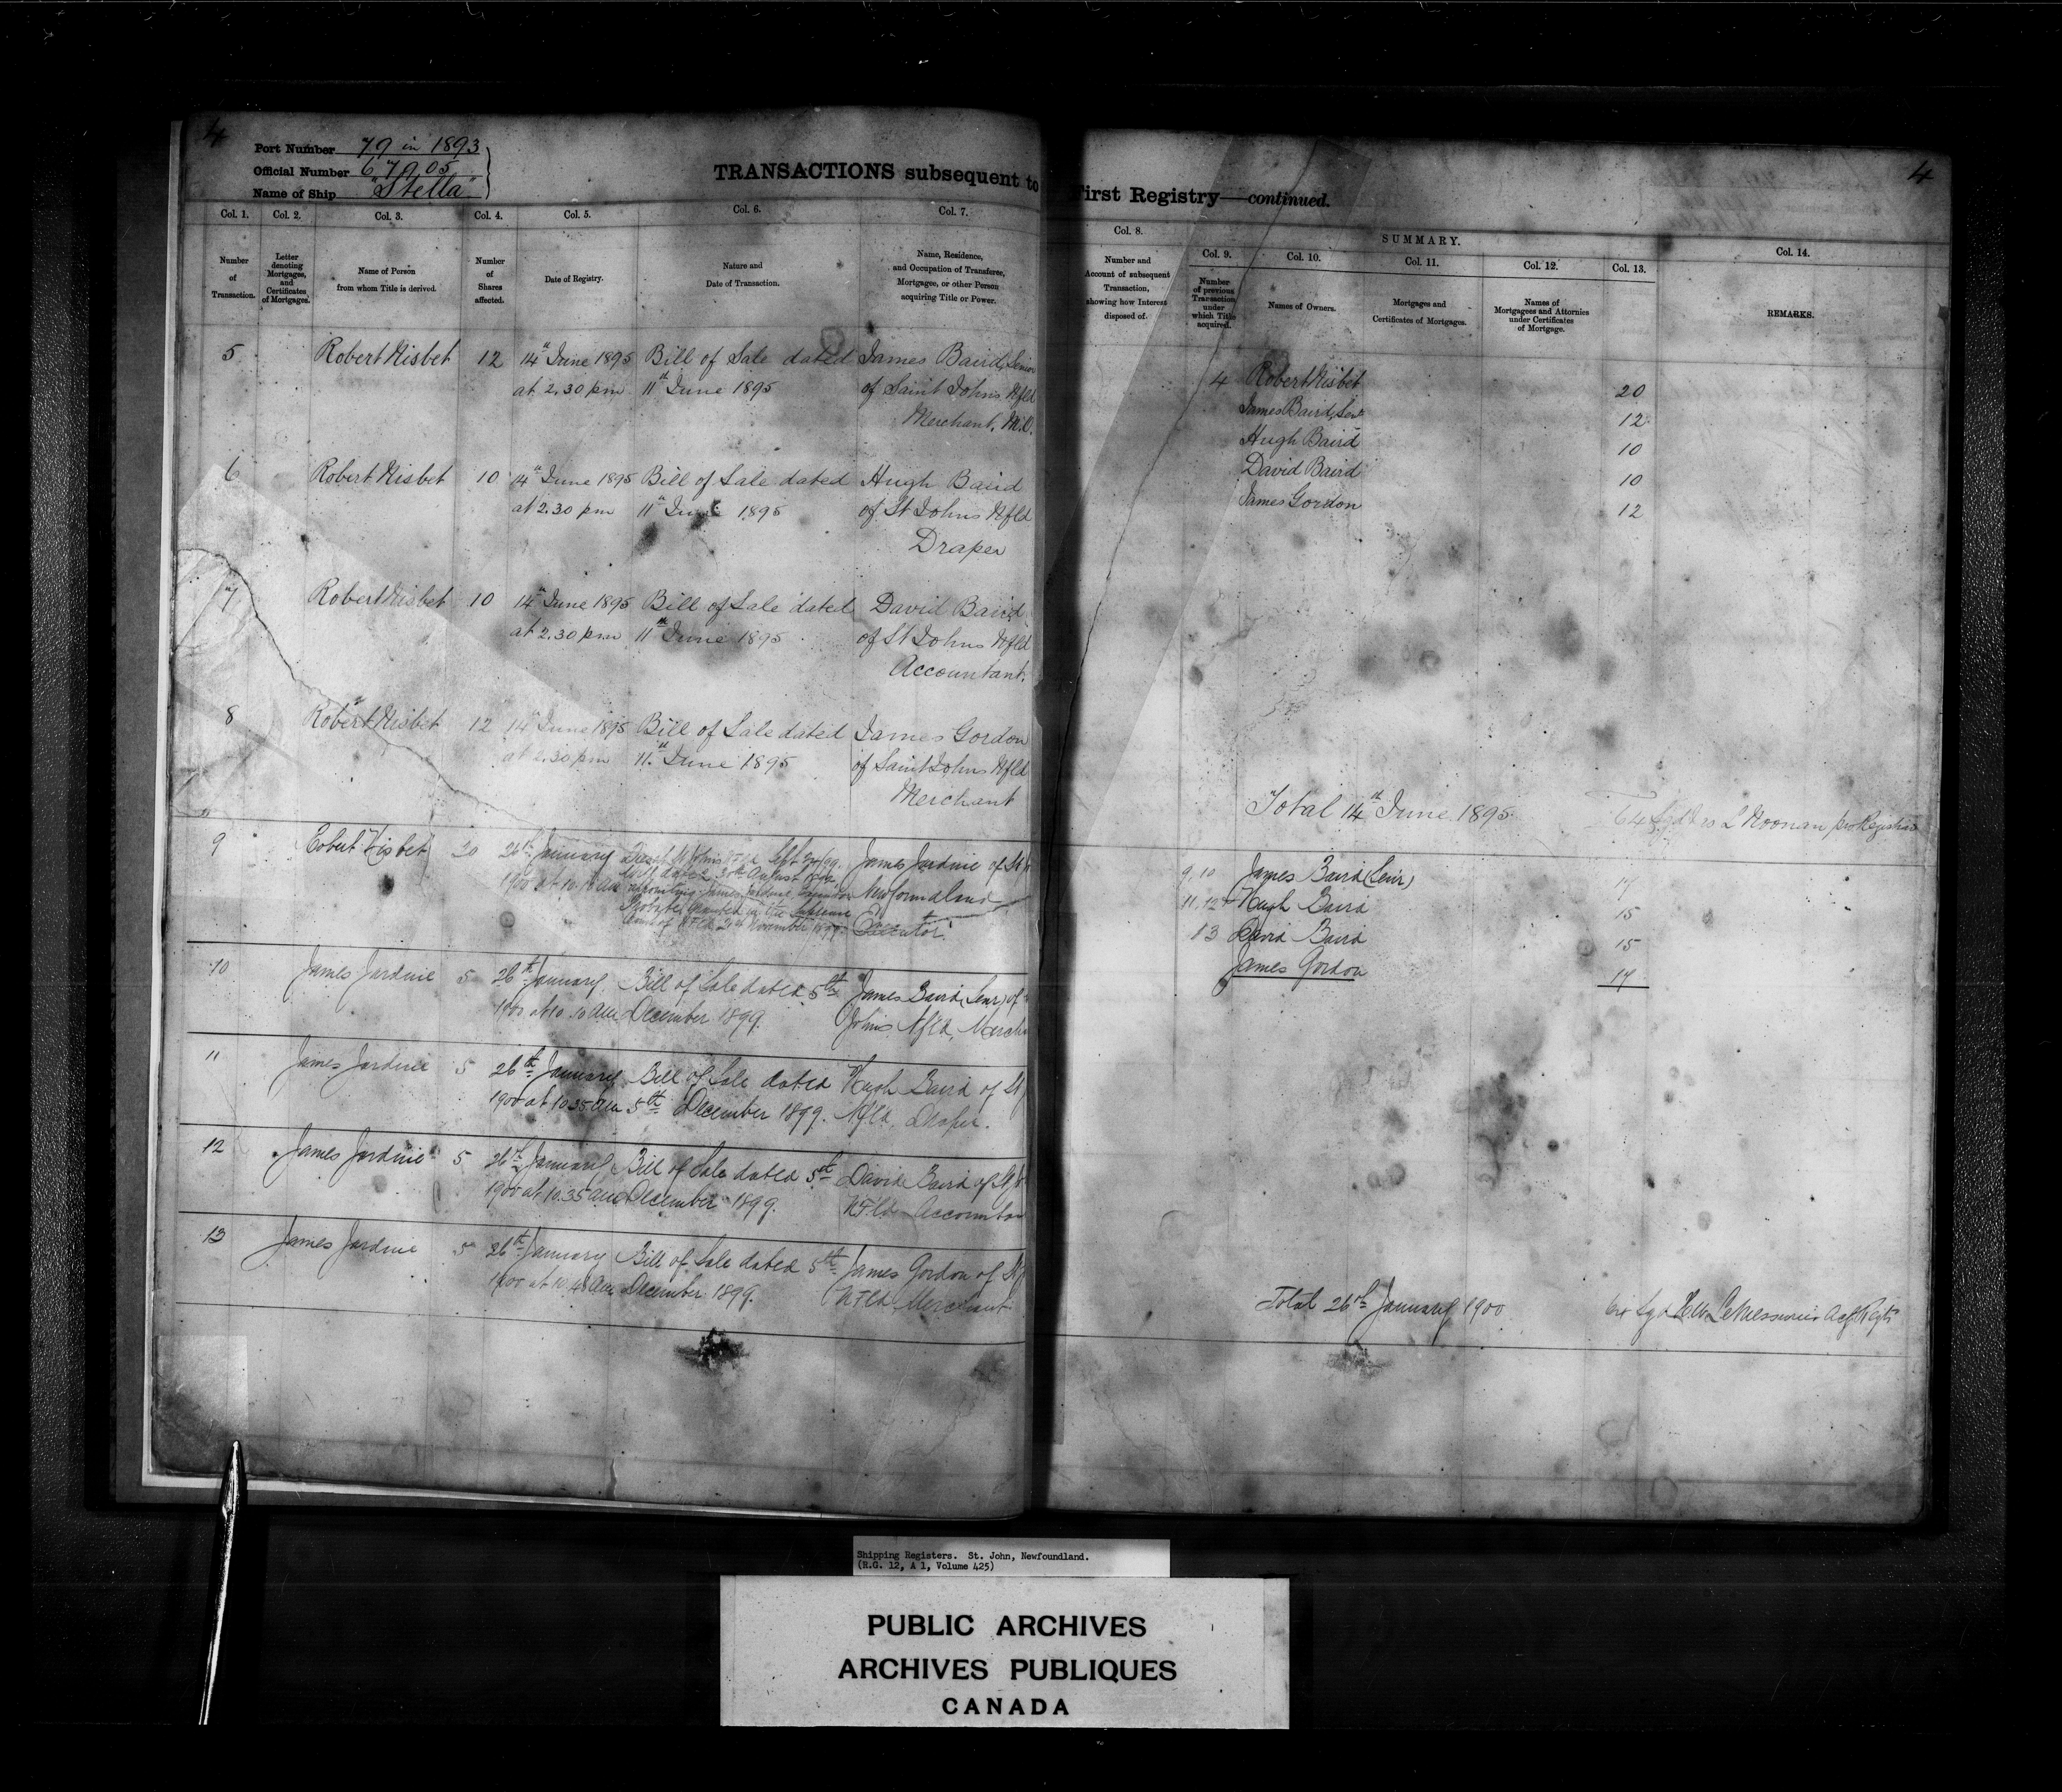 4
Port Number 79 in 1893
Official Number 67905
Name of Ship "Stella"
TRANSACTIONS subsequent to
Col. 1. Col. 2. Col. 3. Col. 4. Col. 5. Col. 6. Col. 7.
Number of Transaction.
Letter denoting Mortgages, and Certificates of Mortgages.
Name of Person from whom Title is derived.
Number of Shares affected.
Date of Registry.
Nature and Date of Transaction.
Name, Residence, and Occupation of Transferee, Mortgagee, or other Person acquiring Title or Power.
5 Robert Nisbet 12 14th June 1895 Bill of Sale dated James Baird, Senior
at 2.30 pm 11th June 1895 of Saint Johns Nfld
Merchant, M.
6 Robert Nisbet 10 14th June 1895 Bill of Sale dated Hugh Baird
at 2.30 pm 11th June 1895 of St Johns Nfld
Draper
7 Robert Nisbet 10 14th June 1895 Bill of Sale dated David Baird
at 2.30 pm 11th June 1895 of St Johns Nfld
Accountant.
8 Robert Nisbet 12 14th June 1895 Bill of Sale dated James Gordon
at 2.30 pm 11th June 1895 of Saint Johns Nfld
Merchant
9 Robert Nisbet 20 26th January James Jardine of St
1900 at 10. Will dated 30th August
appointing James Jardine Newfoundland
Probate granted in the Supreme
Court of NFld November Executor
10 James Jardine 5 26th January Bill of Sale dated 5th James Baird (Senr) of
1900 at 10. am December 1899. Johns Nfld, Merch
11 James Jardine 5 26th January Bill of Sale dated Hugh Baird of St
1900 at 10.35 am 5th December 1899. Nfld, Draper.
12 James Jardine 5 26th January Bill of Sale dated 5th David Baird of St
1900 at 10.35 am December 1899. NFld Accountan
13 James Jardine 5 26th January Bill of Sale dated 5th James Gordon of St
1900 at 10. am December 1899. NFld Merchant
4
First Registry—continued.
Col. 8.
SUMMARY.
Col. 9. Col. 10. Col. 11. Col. 12. Col. 13. Col. 14.
Number and Account of subsequent Transaction, showing how Interest disposed of.
Number of previous Transaction under which Title acquired.
Names of Owners.
Mortgages and Certificates of Mortgages.
Names of Mortgagees and Attornies under Certificates of Mortgage.
REMARKS.
4 Robert Nisbet 20
James Baird, Senr 12
Hugh Baird 10
David Baird 10
James Gordon 12
Total 14th June 1895 64 Noonan pro Registrar
9, 10 James Baird (Senr) 17
11, 12 Hugh Baird 15
13 David Baird 15
James Gordon 17
Total 26th January 1900 64 Sgd LeMessurier
Shipping Registers. St. John, Newfoundland.
(R.G. 12, A 1, Volume 425)
PUBLIC ARCHIVES
ARCHIVES PUBLIQUES
CANADA